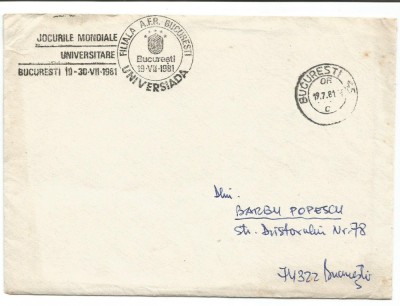 JOCURILE MONDIALE
UNIVERSITARE
BUCURESTI 19-30-VII-1981
FILIALA A.F.R. BUCURESTI
Bucureşti
19-VII-1981
UNIVERSIADA
BUCUREŞTI
OR
19.7.81
C
BARBU POPESCU
str. Nr. 78
74322 Bucureşti